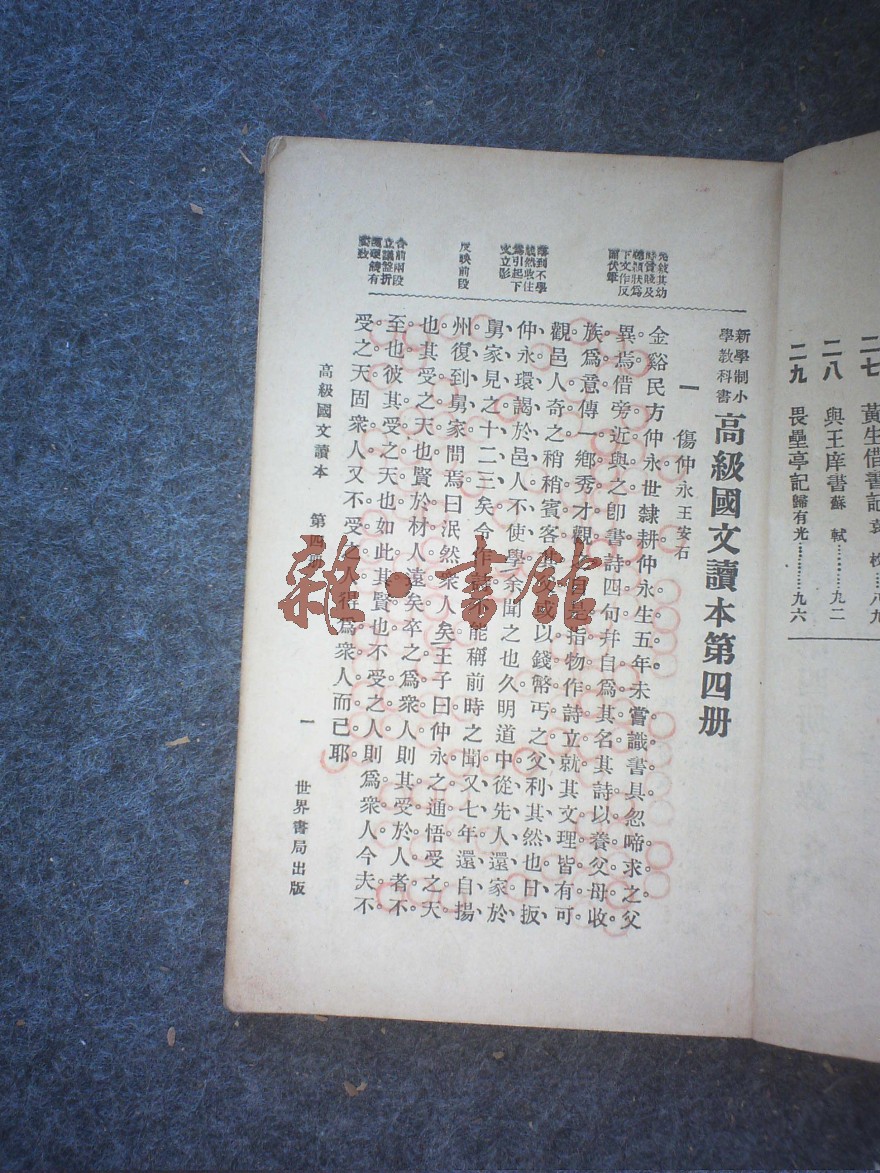 二七 黃生借書記袁 枚…八九
二八 與王庠書蘇 軾………九二
二九 畏壘亭記歸有光…………九六
新學制小
學教科書
高級國文讀本第四册
一 傷仲永王安石
先敘其幼
下文作反
面伏筆
金谿民方仲永世隸耕仲永生五年未嘗識書具忽啼求之父
異焉借旁近與之卽書詩四句幷自爲其名其詩以養父母收
族爲意傳一鄉秀才觀自是指物作詩立就其文理皆有可
觀邑人奇之稍稍賓客其父或以錢幣丐之父利其然也日扳
落到不學
爲引起下
文立影
仲永環謁於邑人不使學余聞之也久明道中從先人還家於
舅家見之十二三矣令作詩不能稱前時之聞又七年還自揚
反映前段
州復到舅家問焉曰泯然衆人矣王子曰仲永之通悟受之天
也其受之天也賢於材人遠矣卒之爲衆人則其受於人者不
合前兩段
至也彼其受之天也如此其賢也不受之人則爲衆人今夫不
受之天固衆人又不受之人得爲衆人而已耶
高級國文讀本 第四册 一 世界書局出版
雜·書館